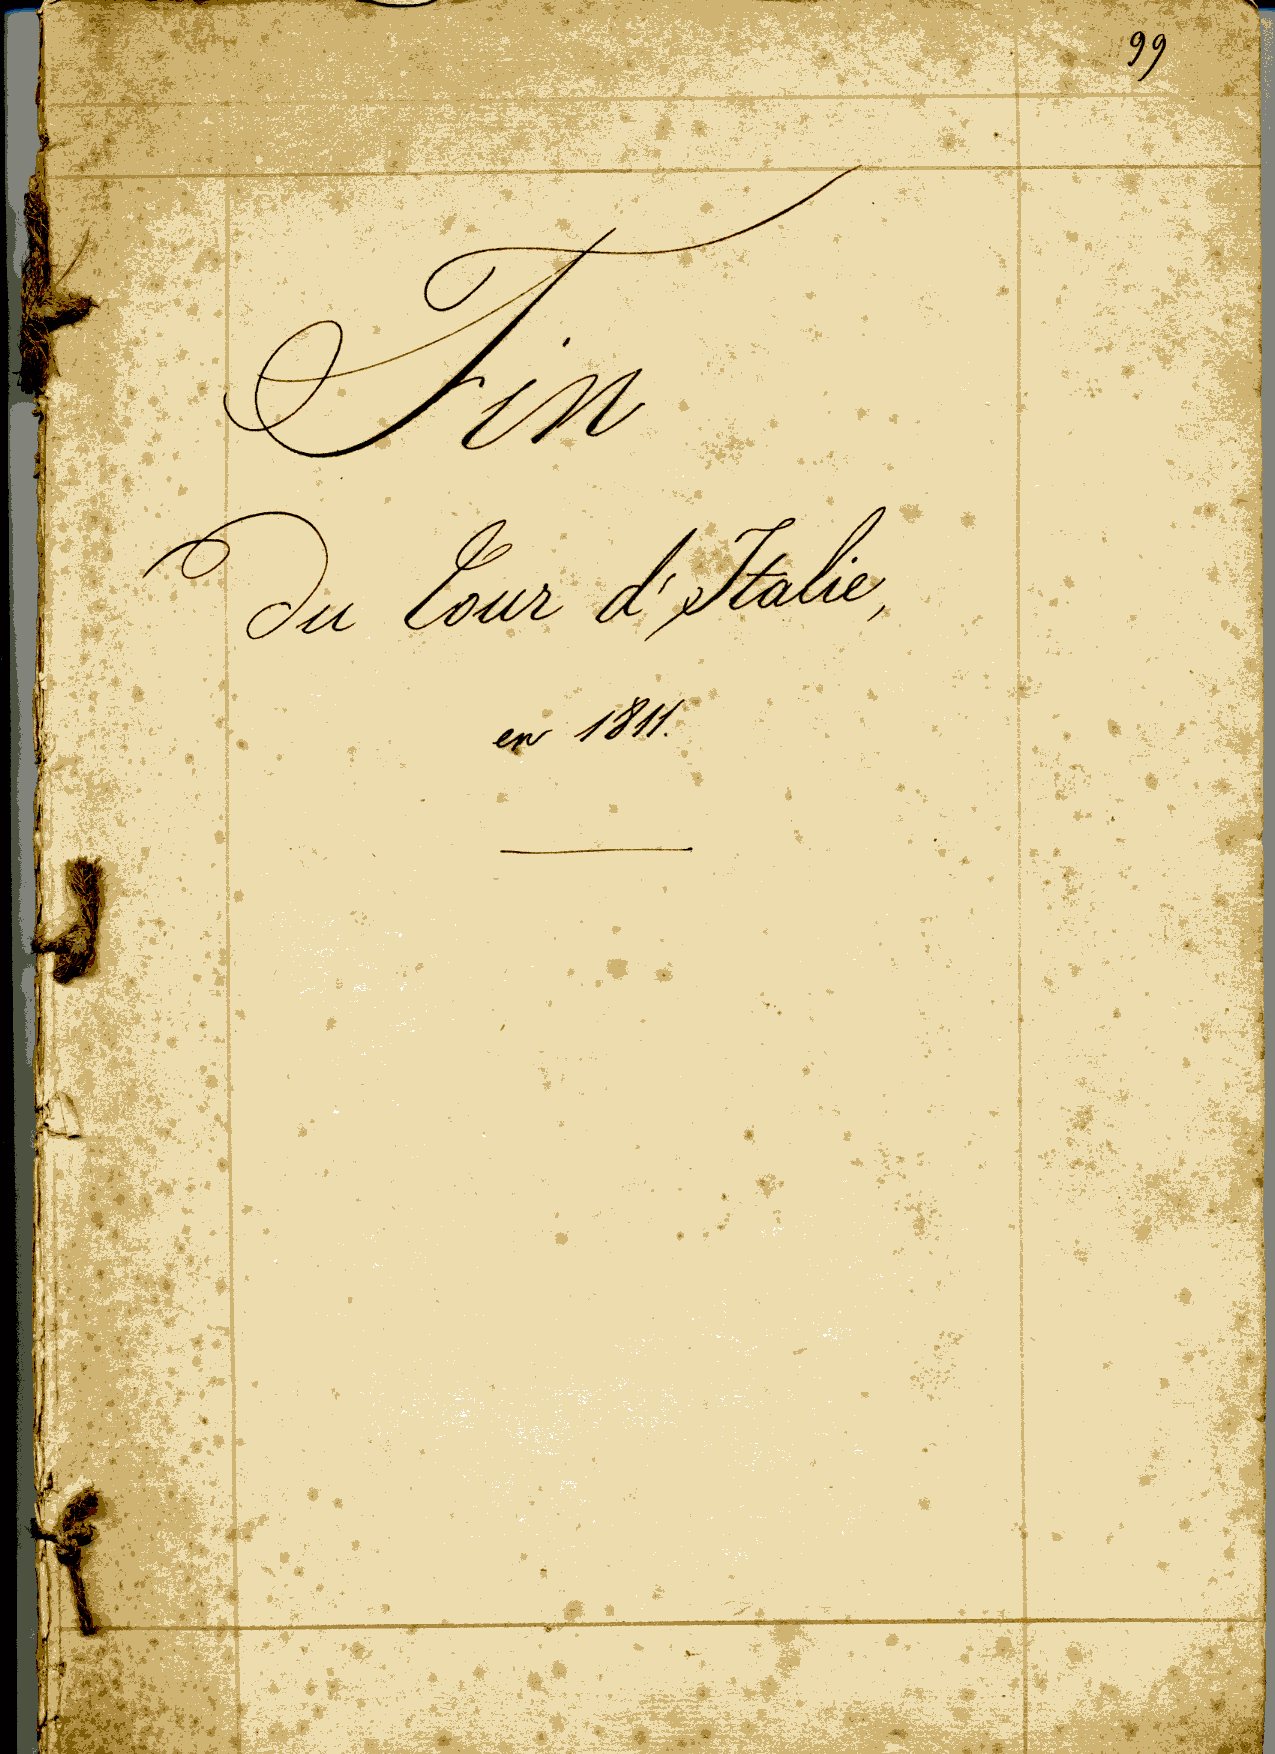 99
Fin
du tour d'Italie,
en 1811.